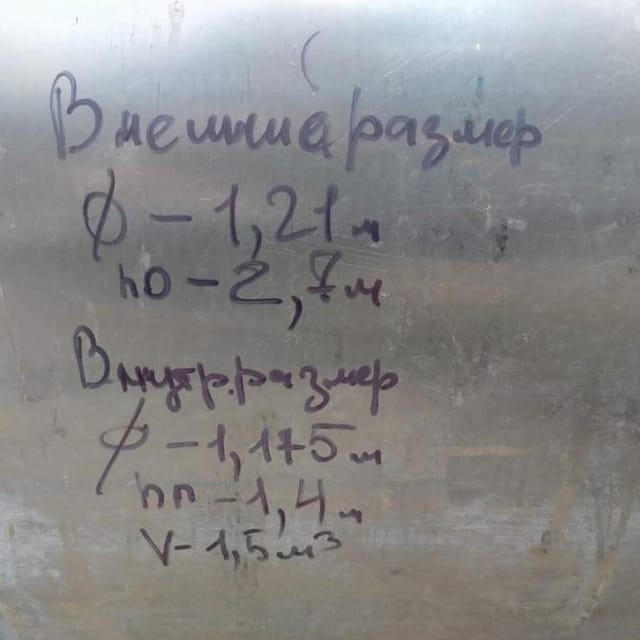 Внешниа размер
ϕ - 1,21м
hО - 2,7м
Внутр. размер
ϕ - 1,175м
hп - 1,4м
V - 1,5м³